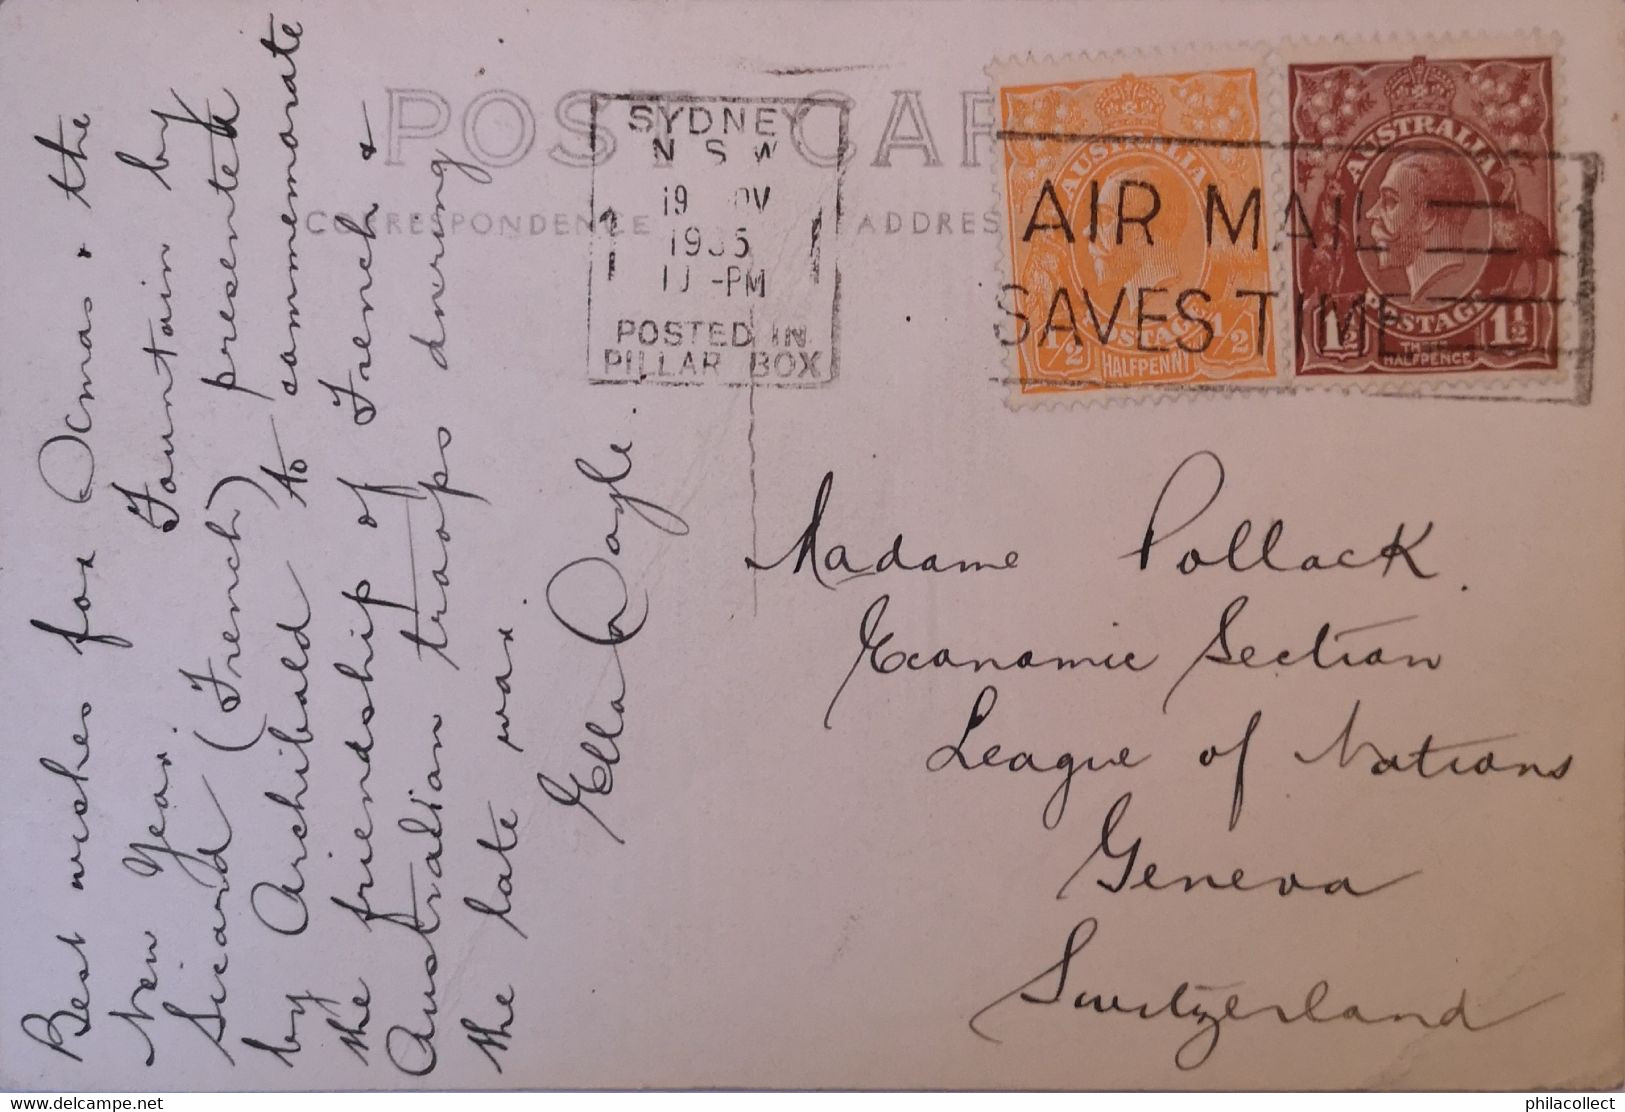 POST CAR
CORRESPONDENCE
ADDRES
SYDNEY
N S W
19 OV
1935
-PM
POSTED IN
PILLAR BOX
AIR MAIL
SAVES TIME
AUSTRALIA
POSTAGE
1/2 1/2
HALFPENNY
AUSTRALIA
POSTAGE
1½ 1½
THREE
HALFPENCE
Best wishes for Xmas & the
New Year. Fountain by
Sicard (French) presented
by Archibald to commemorate
the friendship of French &
Australian troops during
the late war.
Ella Doyle
Madame Pollack.
Economic Section
League of Nations
Geneva
Switzerland
www.delcampe.net
philacollect